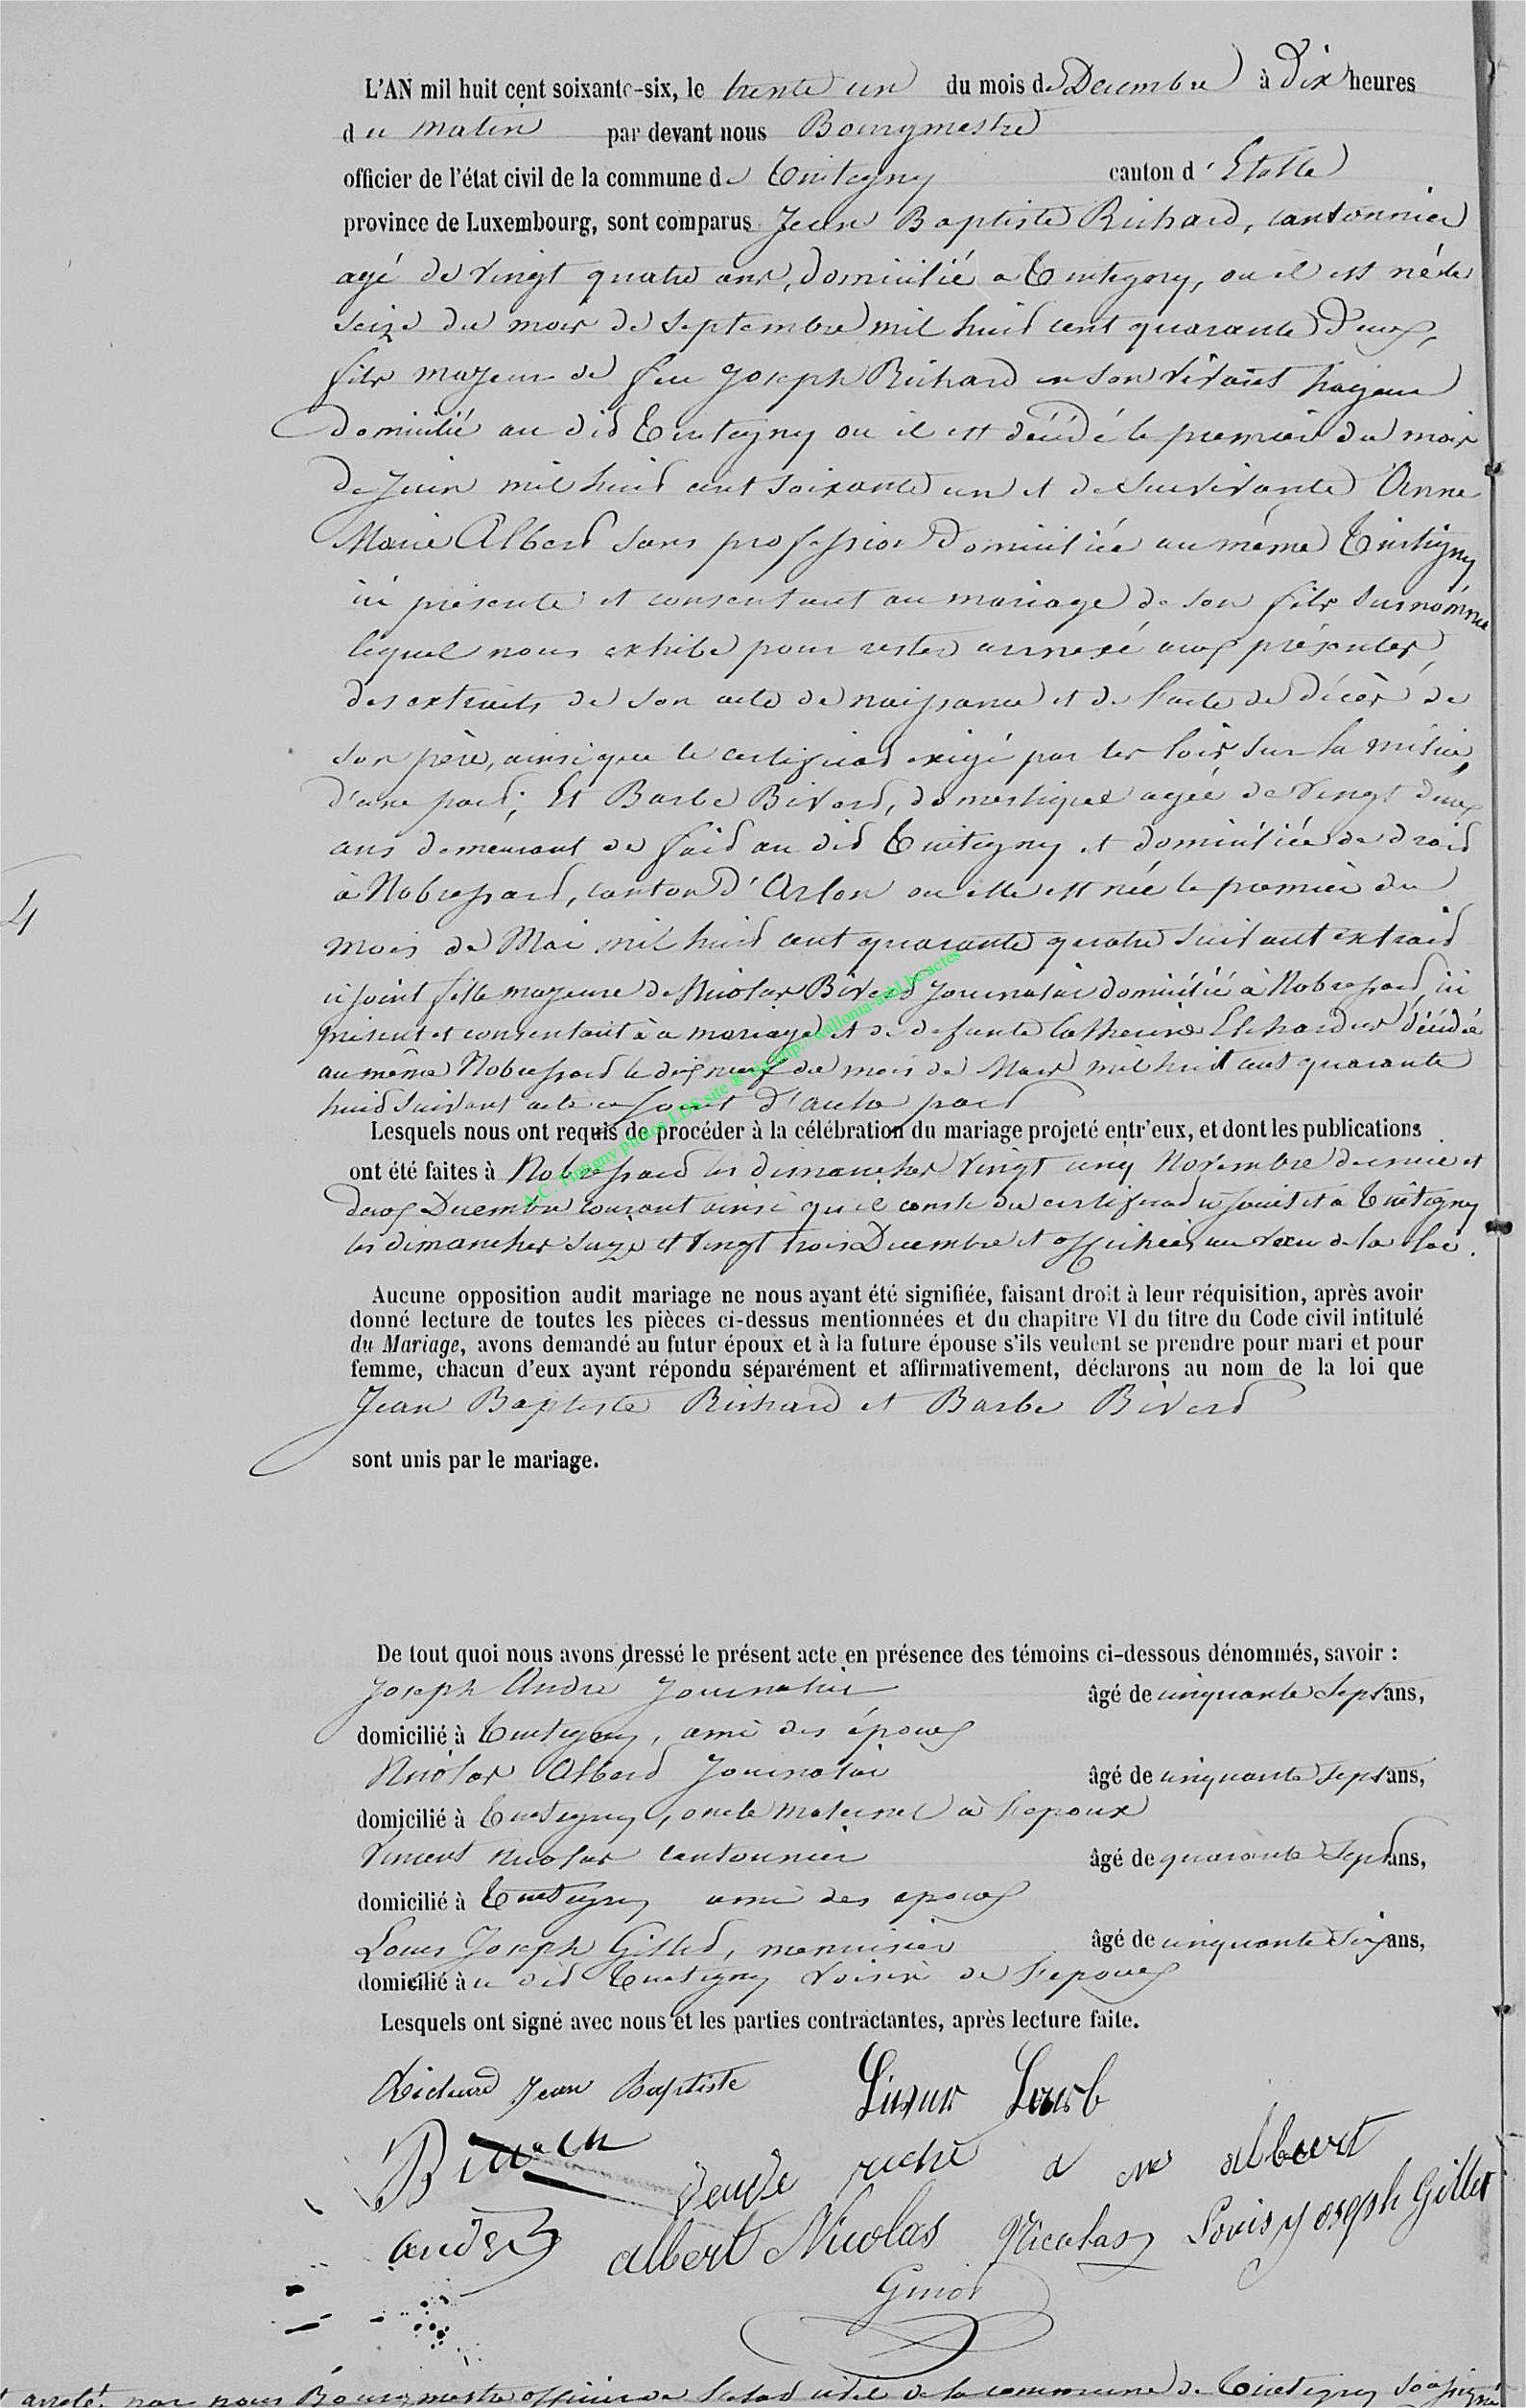 L'AN mil huit cent soixante-six, le trente un du mois de Decembre à Dix heures
du matin par devant nous Bourgmestre
officier de l'état civil de la commune de Tintigny canton d'Etalle
province de Luxembourg, sont comparus Jean Baptiste Richard, cantonnier
agé de vingt quatre ans, domicilié a Tintigny, ou il est né le
seize du mois de Septembre mil huit cent quarante deux,
fils majeur de feu Joseph Richard en son vivant
domicilié au dit Tintigny ou il est décédé le premier du mois
de Juin mil huit cent soixante un et de survivante Anne
Marie Albert sans profession domiciliée au même Tintigny
ici présente et consentant au mariage de son fils surnommé
lequel nous exhibe pour rester annexé aux présentes,
des extraits de son acte de naissance et de l'acte de décès de
son père, ainsi que le certificat exigé par les lois sur la milice,
d'une part; Et Barbe Bivert, domestique agée de vingt deux
ans demeurant de fait au dit Tintigny et domiciliée de droit
à Nobressart, canton d'Arlon ou elle est née le premier du
mois de Mai mil huit cent quarante quatre suivant extrait
4
ci joint fille majeure de Nicolas Bivert Journalier domicilié à Nobressart, ici
présent et consentant à ce mariage et de defunte Catherine décédée
au même Nobressart le dix neuf du mois de Mars mil huit cent quarante
huit suivant acte ci joint d'autre part
Lesquels nous ont requis de procéder à la célébration du mariage projeté entr'eux, et dont les publications
ont été faites à Nobressart les dimanches vingt cinq Novembre dernier et
deux Decembre courant ainsi qu'il conste du certificat ci joint et a Tintigny
les dimanches seize et vingt trois Decembre et affichées au voeu de la loi.
Aucune opposition audit mariage ne nous ayant été signifiée, faisant droit à leur réquisition, après avoir
donné lecture de toutes les pièces ci-dessus mentionnées et du chapitre VI du titre du Code civil intitulé
du Mariage, avons demandé au futur époux et à la future épouse s'ils veulent se prendre pour mari et pour
femme, chacun d'eux ayant répondu séparément et affirmativement, déclarons au nom de la loi que
Jean Baptiste Richard et Barbe Bivert
sont unis par le mariage.
De tout quoi nous avons dressé le présent acte en présence des témoins ci-dessous dénommés, savoir :
Joseph André Journalier âgé de cinquante Sept ans,
domicilié à Tintigny, ami des époux
Nicolas Albert Journalier âgé de cinquante Sept ans,
domicilié à Tintigny, oncle maternel à l'epoux
Vincent Nicolas cantonnier âgé de quarante Sept ans,
domicilié à Tintigny ami des epoux
Louis Joseph Gillet, menuisier âgé de cinquante Six ans,
domicilié à u dit Tintigny voisin de l'epoux
Lesquels ont signé avec nous et les parties contractantes, après lecture faite.
Richard Jean Baptiste
veuve riche a m albert
andre albert Nicolas Nicolas Louis Joseph Gillet
arrêté par nous Bourgmestre officier de l'etat civil de la commune de Tintigny soussigné